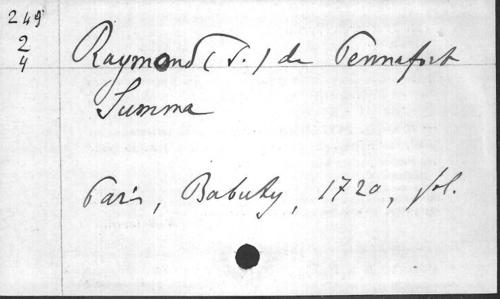 249
2
4
Raymond (S.) de Pennafort
Summa
Paris, Babuty, 1720, fol.